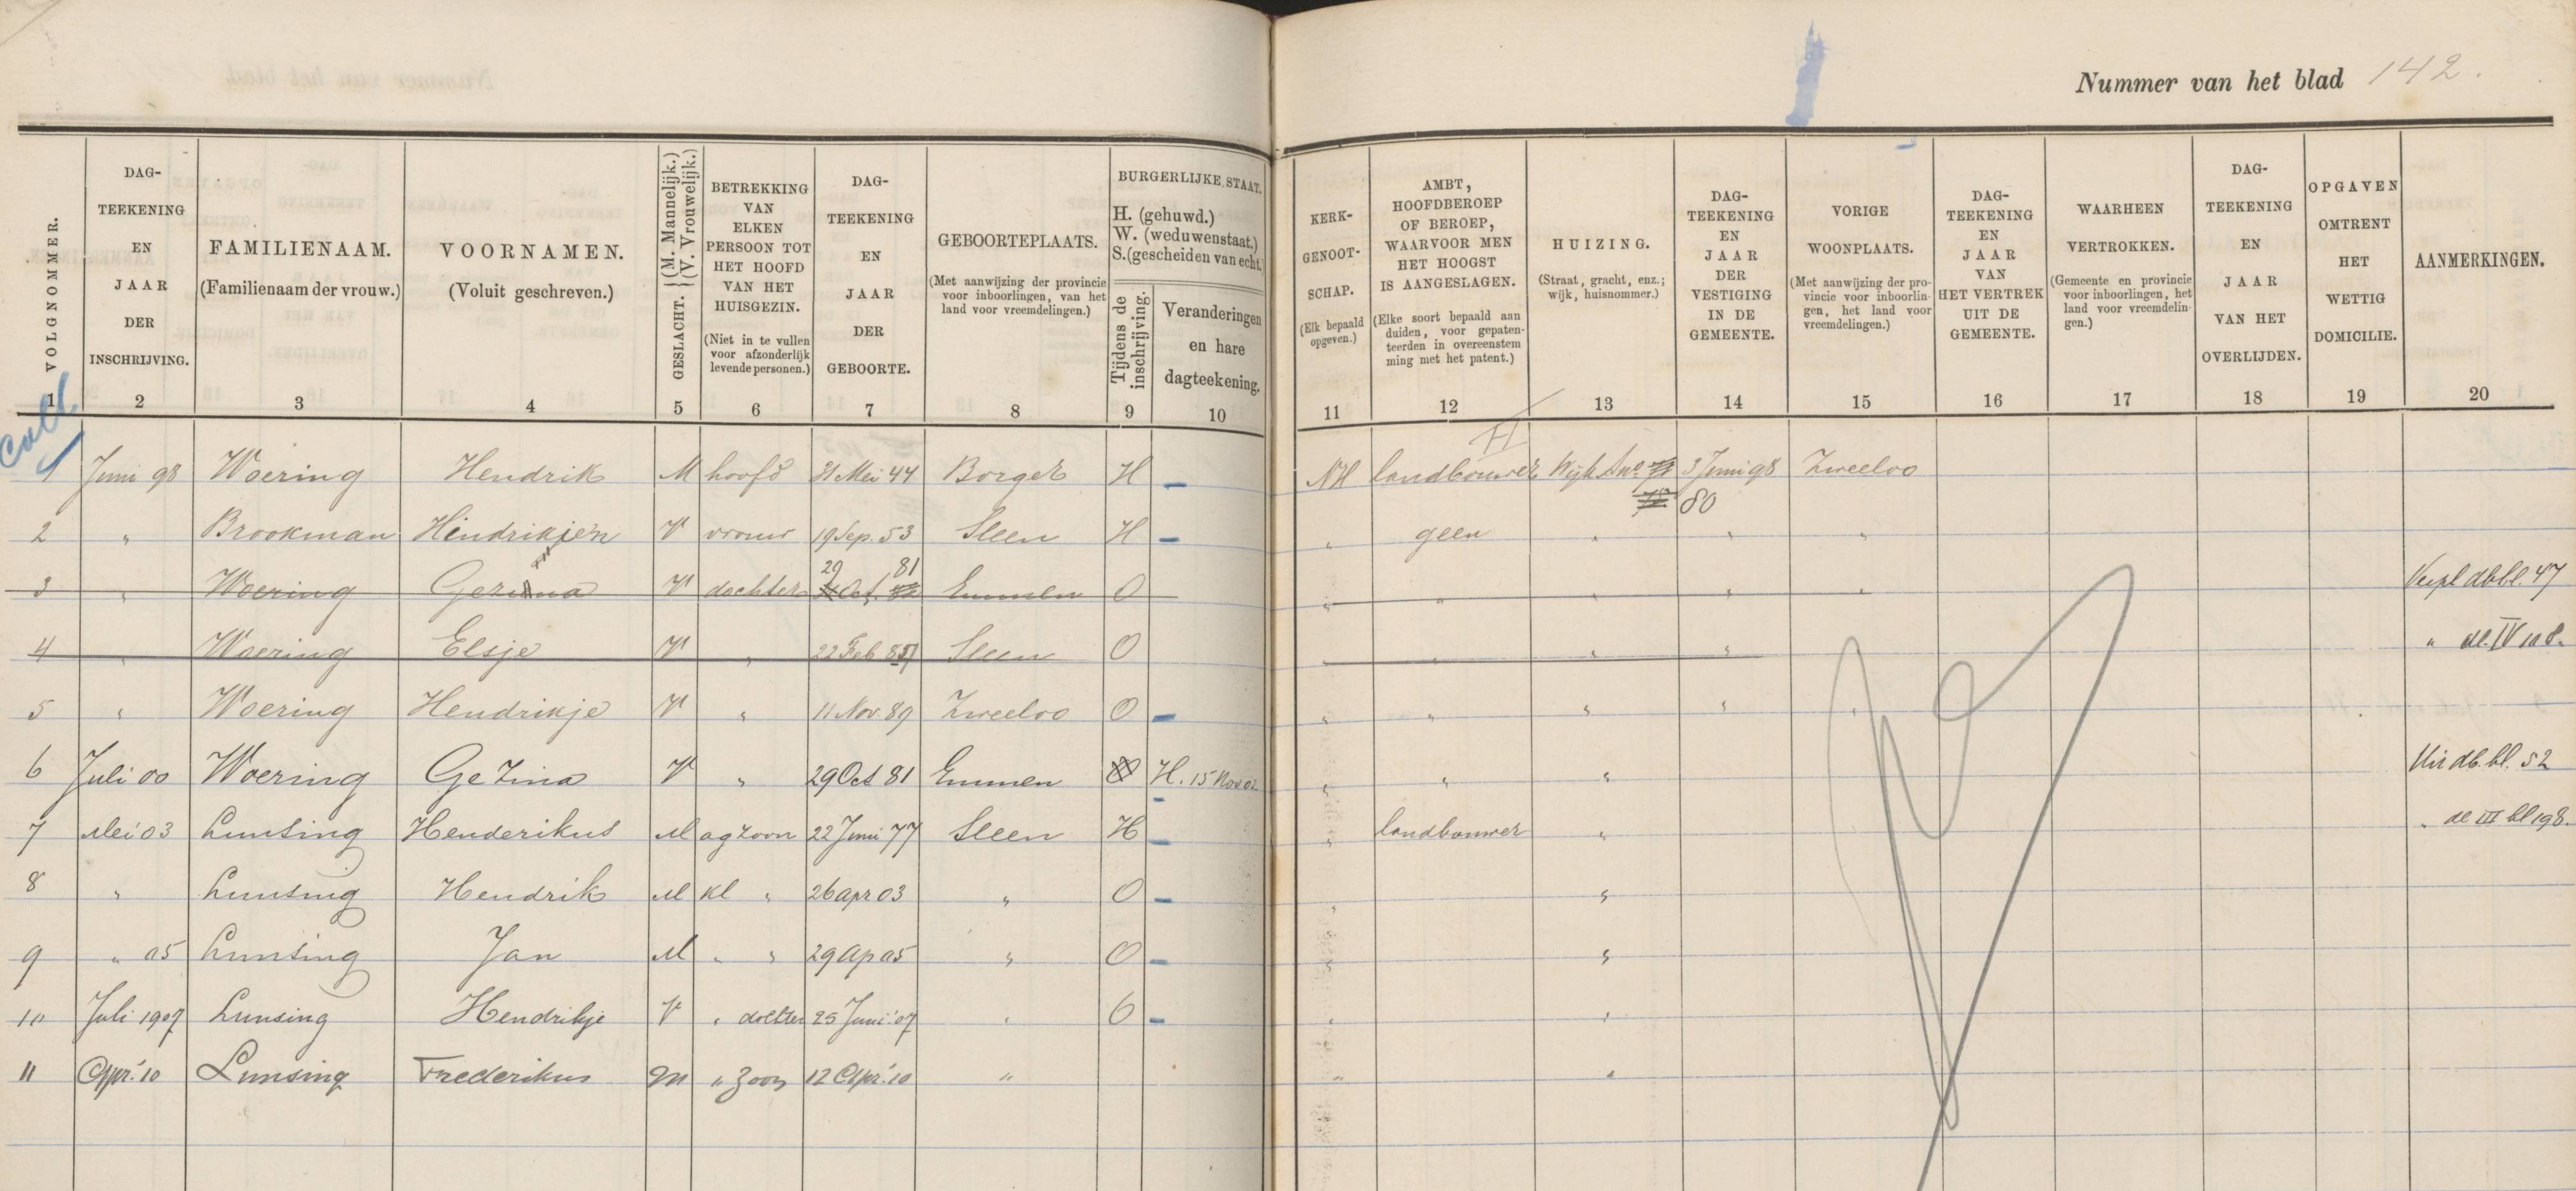 Nummer van het blad 142.
VOLGNOMMER.
DAG-
TEEKENING
EN
JAAR
DER
INSCHRIJVING.
FAMILIENAAM.
(Familienaam der vrouw.)
VOORNAMEN.
(Voluit geschreven.)
GESLACHT. (M. Mannelijk.)
(V. Vrouwelijk.)
BETREKKING
VAN
ELKEN
PERSOON TOT
HET HOOFD
VAN HET
HUISGEZIN.
(Niet in te vullen
voor afzonderlijk
levende personen.)
DAG-
TEEKENING
EN
JAAR
DER
GEBOORTE.
GEBOORTEPLAATS.
(Met aanwijzing der provincie
voor inboorlingen, van het
land voor vreemdelingen.)
BURGERLIJKE STAAT.
H. (gehuwd.)
W. (weduwenstaat.)
S. (gescheiden van echt.)
Tijdens de
inschrijving.
Veranderingen
en hare
dagteekening.
KERK-
GENOOT-
SCHAP.
(Elk bepaald
opgeven.)
AMBT,
HOOFDBEROEP
OF BEROEP,
WAARVOOR MEN
HET HOOGST
IS AANGESLAGEN.
(Elke soort bepaald aan
duiden, voor gepaten-
teerden in overeenstem
ming met het patent.)
HUIZING.
(Straat, gracht, enz.;
wijk, huisnommer.)
DAG-
TEEKENING
EN
JAAR
DER
VESTIGING
IN DE
GEMEENTE.
VORIGE
WOONPLAATS.
(Met aanwijzing der pro-
vincie voor inboorlin-
gen, het land voor
vreemdelingen.)
DAG-
TEEKENING
EN
JAAR
VAN
HET VERTREK
UIT DE
GEMEENTE.
WAARHEEN
VERTROKKEN.
(Gemeente en provincie
voor inboorlingen, het
land voor vreemdelin-
gen.)
DAG-
TEEKENING
EN
JAAR
VAN HET
OVERLIJDEN.
OPGAVEN
OMTRENT
HET
WETTIG
DOMICILIE.
AANMERKINGEN.
1 2 3 4 5 6 7 8 9 10 11 12 13 14 15 16 17 18 19 20
1 Juni 98 Woering Hendrik M hoofd 31 Mei 44 Borger H NH landbouwer Wijk 3 Juni 98 Zweeloo
80
2 " Brookman Hindrikjen V vrouw 19 Sep. 53 Sleen H " geen " " "
29 81
3 " Woering Gezina V dochter Oct. Emmen O " " " " " Verpl db bl. 47
4 " Woering Elsje V " 22 Feb Sleen O " " " " " dl. IV
5 " Woering Hendrikje V " 11 Nov. 89 Zweeloo O " " " " "
6 Juli 00 Woering Gezina V " 29 Oct 81 Emmen O H. 15 Nov 02 " " " Uit db. bl. 52
7 Mei 03 Lunsing Henderikus M agzoon 22 Juni 77 Sleen H " landbouwer " " dl III bl 198.
8 " Lunsing Hendrik M kl " 26 apr 03 " O " "
9 " 05 Lunsing Jan M " " 29 Ap 05 " O " "
10 Juli 1907 Lunsing Hendrikje V " dochter 25 Juni '07 " O " "
11 Apr. '10 Lunsing Frederikus m " Zoon 12 Apr. '10 " " "